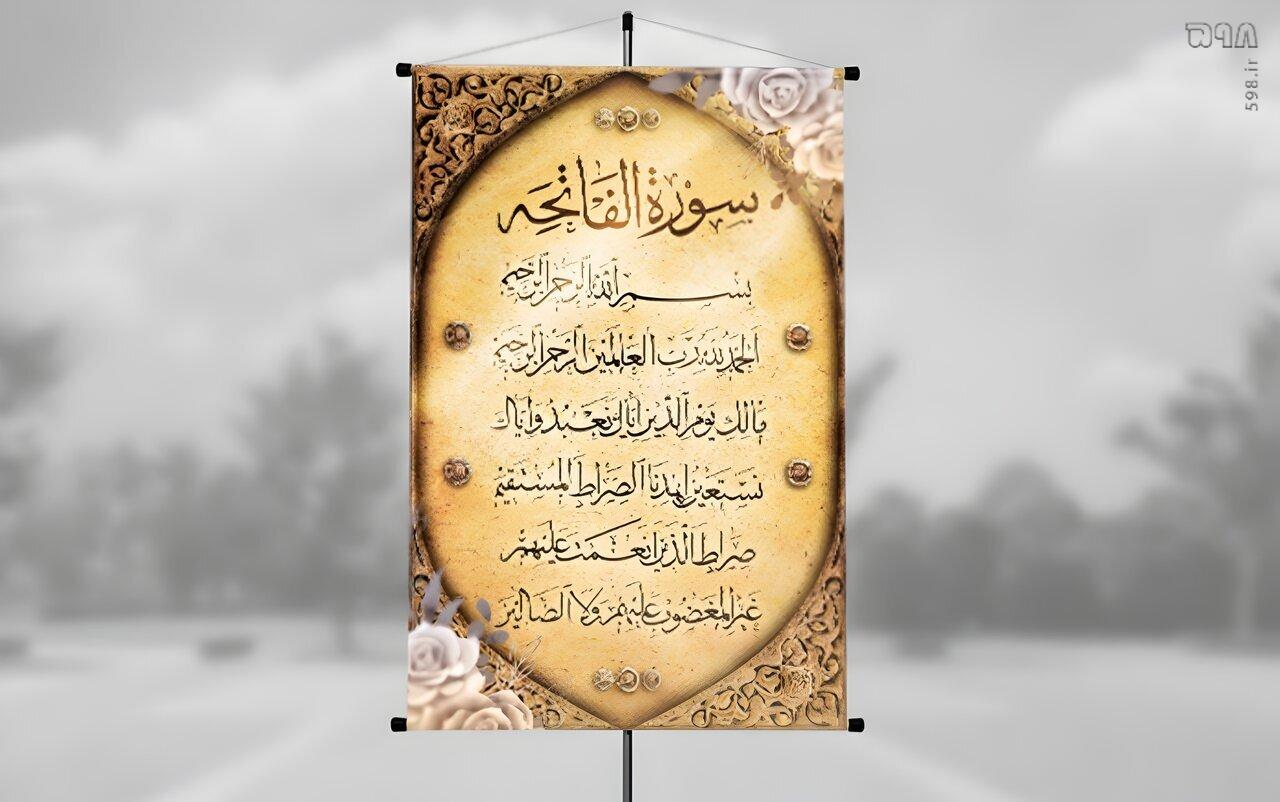 سورة الفاتحه
بسم الله الرحمن الرحیم
الحمد لله رب العالمین الرحمن الرحیم
مالك یوم الدین ایاك نعبد وایاك
نستعین اهدنا الصراط المستقیم
صراط الذین انعمت علیهم
غیر المغضوب علیهم ولا الضالین
۵۹۸
598.ir